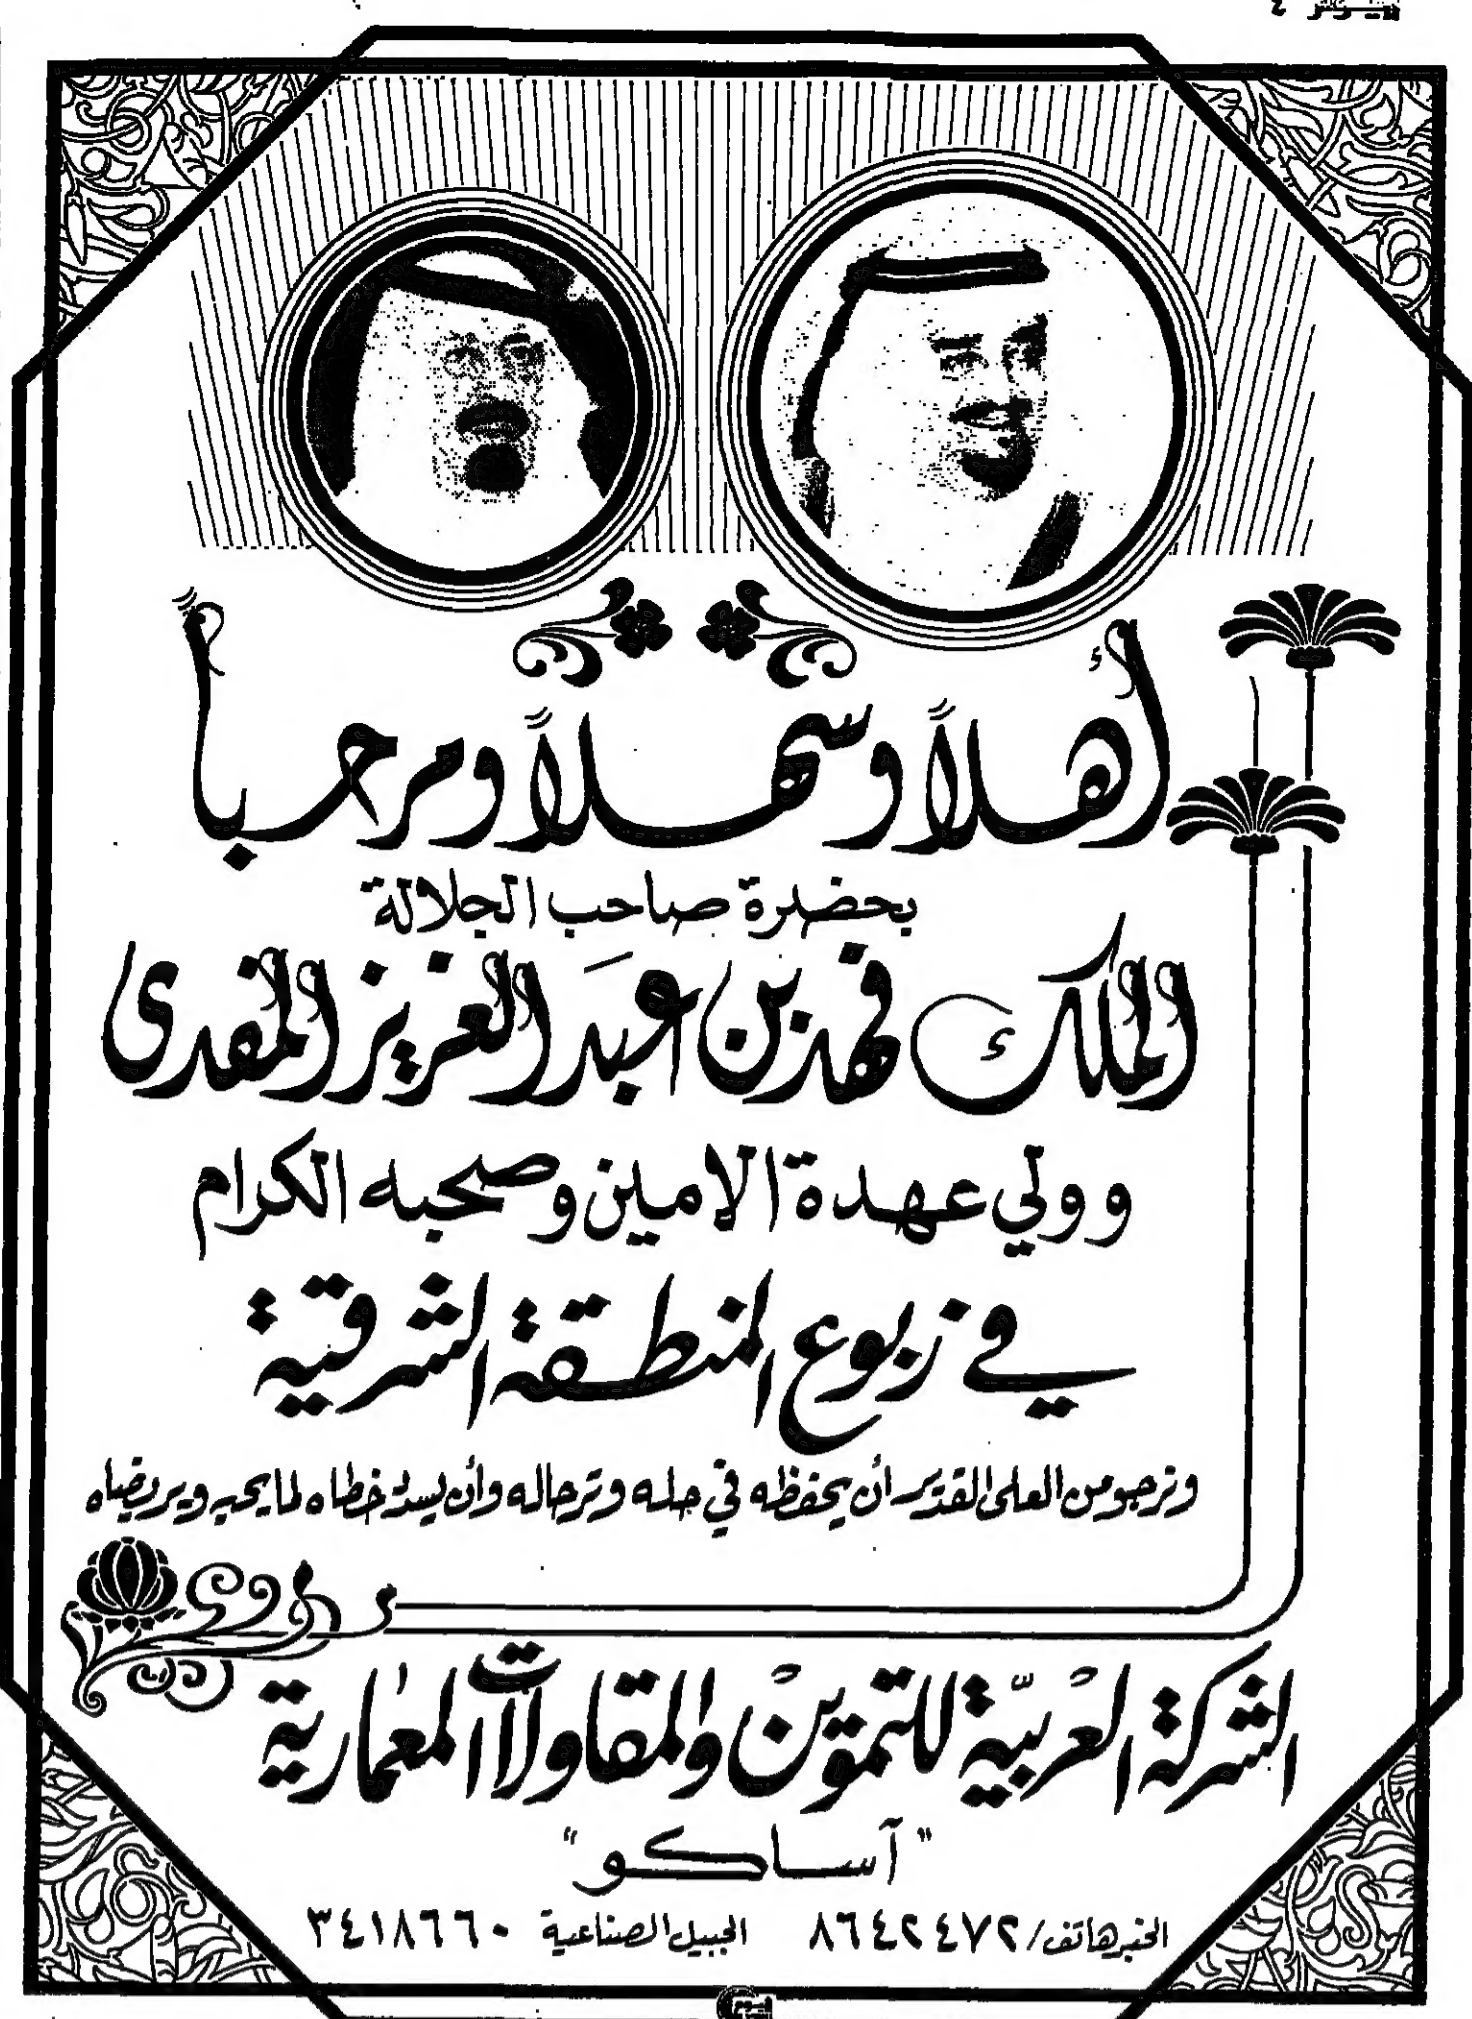 أهلاً وسهلاً ومرحباً
بحضرة صاحب الجلالة
الملك فهد بن عبد العزيز المفدى
وولي عهدة الامين وصحبه الكرام
في ربوع المنطقة الشرقية
ونرجو من العلى القدير أن يحفظه في حله وترحاله وأن يسدد خطاه لما يحبه ويرضاه
الشركة العربية للتموين والمقاولات المعمارية
"آساكو"
الخبر هاتف/ ٨٦٤٢٤٧٢ الجبيل الصناعية ٣٤١٨٦٦٠